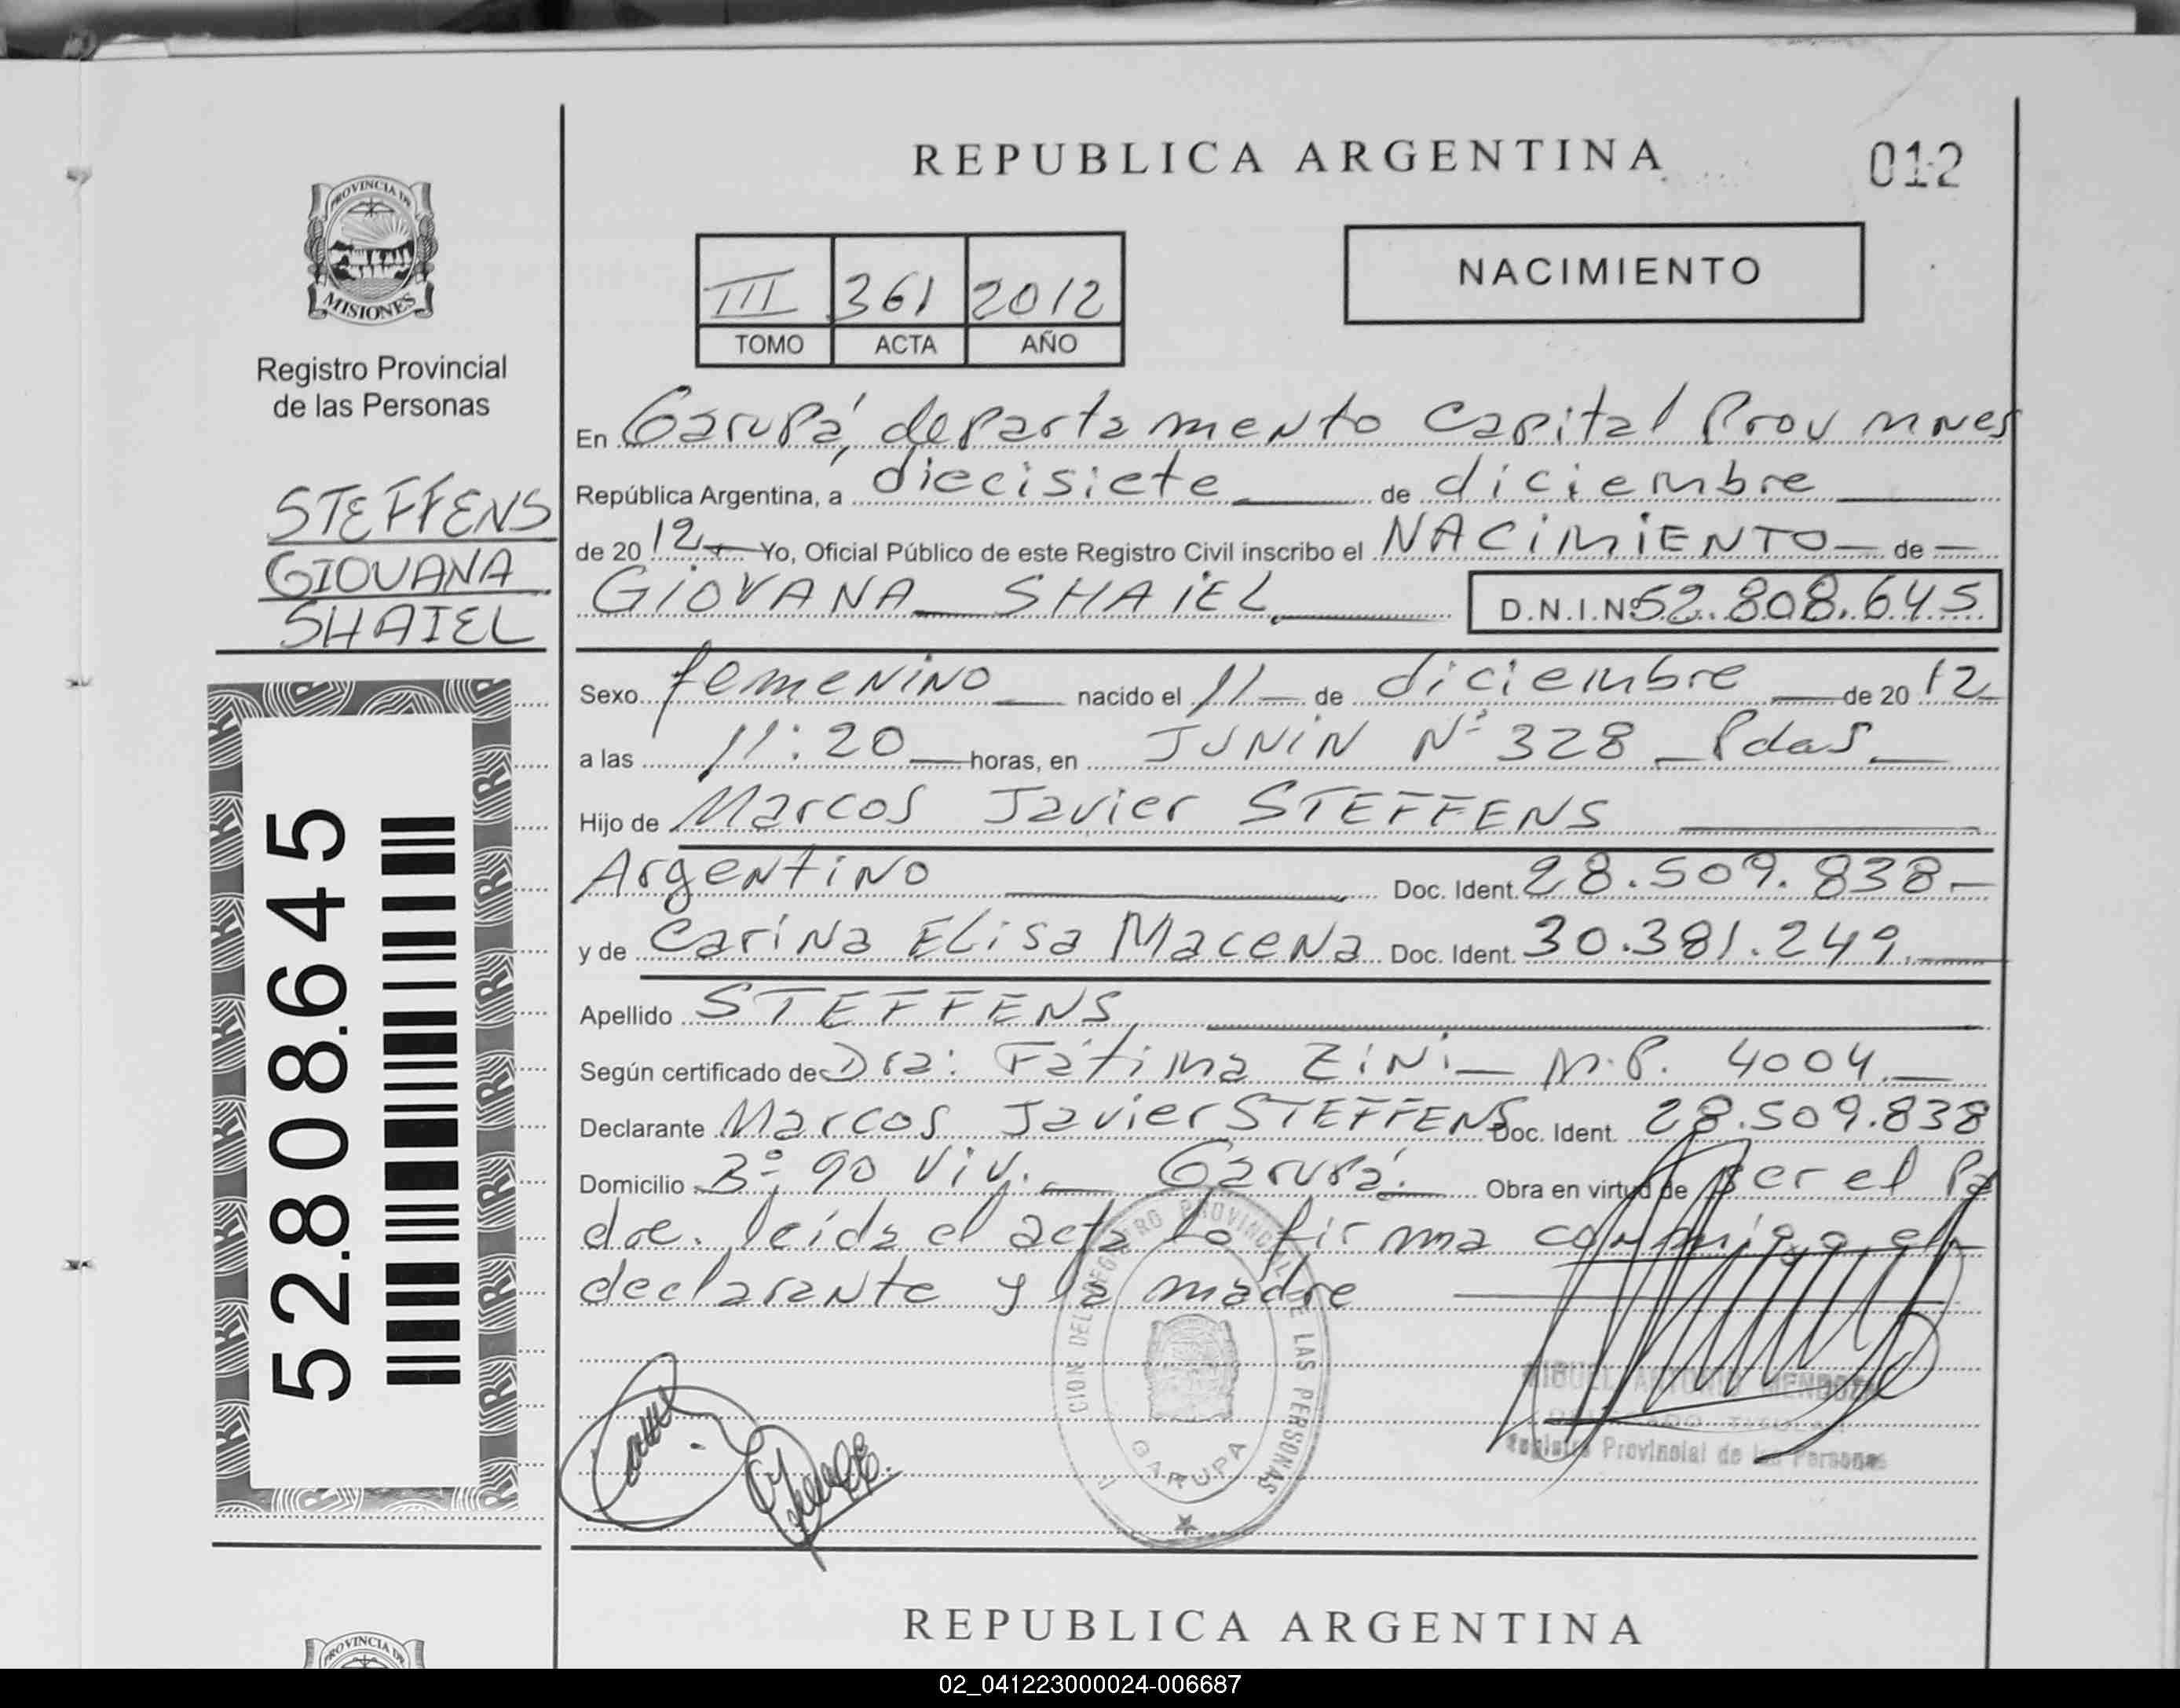 REPUBLICA ARGENTINA
012
PROVINCIA DE
MISIONES
Registro Provincial
de las Personas
STEFFENS
GIOVANA
SHAIEL
52.808.645
NACIMIENTO
III 361 2012
TOMO ACTA AÑO
En Garupá, departamento Capital Prov Mnes
República Argentina, a diecisiete de diciembre
de 2012 Yo, Oficial Público de este Registro Civil inscribo el NACIMIENTO de
GIOVANA SHAIEL D.N.I.Nº 52.808.645
Sexo femenino nacido el 11 de diciembre de 2012
a las 11:20 horas, en JUNIN Nº 328 Pdas
Hijo de Marcos Javier STEFFENS
Argentino Doc. Ident. 28.509.838
y de Carina Elisa Macena Doc. Ident. 30.381.249
Apellido STEFFENS
Según certificado de Dra: Fátima Zini M.P. 4004
Declarante Marcos Javier STEFFENS Doc. Ident. 28.509.838
Domicilio Bº 90 Viv. Garupá. Obra en virtud de ser el Pa
dre. leida el acta la firma conmigo el
declarante y la madre
MIGUEL ANTONIO MENDOZA
DELEGADO TITULAR
Registro Provincial de las Personas
DEL REGISTRO PROVINCIAL DE LAS PERSONAS
GARUPA
REPUBLICA ARGENTINA
PROVINCIA DE
02_041223000024-006687